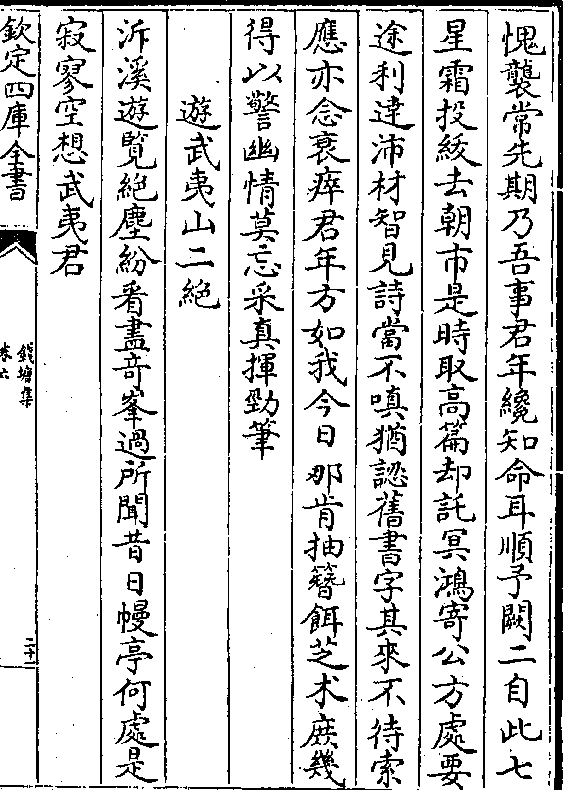 愧襲常先期乃吾事君年纔知命耳順予闕二自此七
星霜投綬去朝市是時取高篇却託冥鴻寄公方處要
途利達沛材智見詩當不嗔猶認舊書字其來不待索
應亦念衰瘁君年方如我今日那肯抽簪餌芝术庶幾
得以警幽情莫忘采真揮勁筆
遊武夷山二絶
泝溪遊覽絶塵紛看盡竒峯過所聞昔日幔亭何處是
寂寥空想武夷君
欽定四庫全書
錢塘集
卷六
二十一